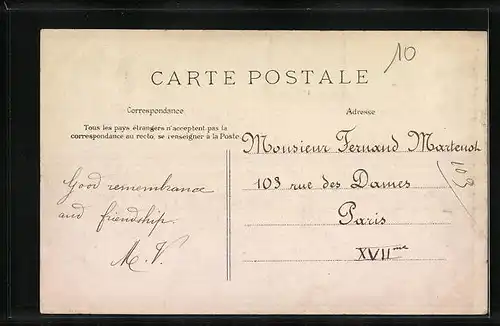 10
CARTE POSTALE
Correspondance
Tous les pays étrangers n'acceptent pas la
correspondance au recto, se renseigner à la Poste
Good remembrance
and friendship.
M. V.
Adresse
Monsieur Fernand Martenot
103 rue des Dames
Paris
XVII ème